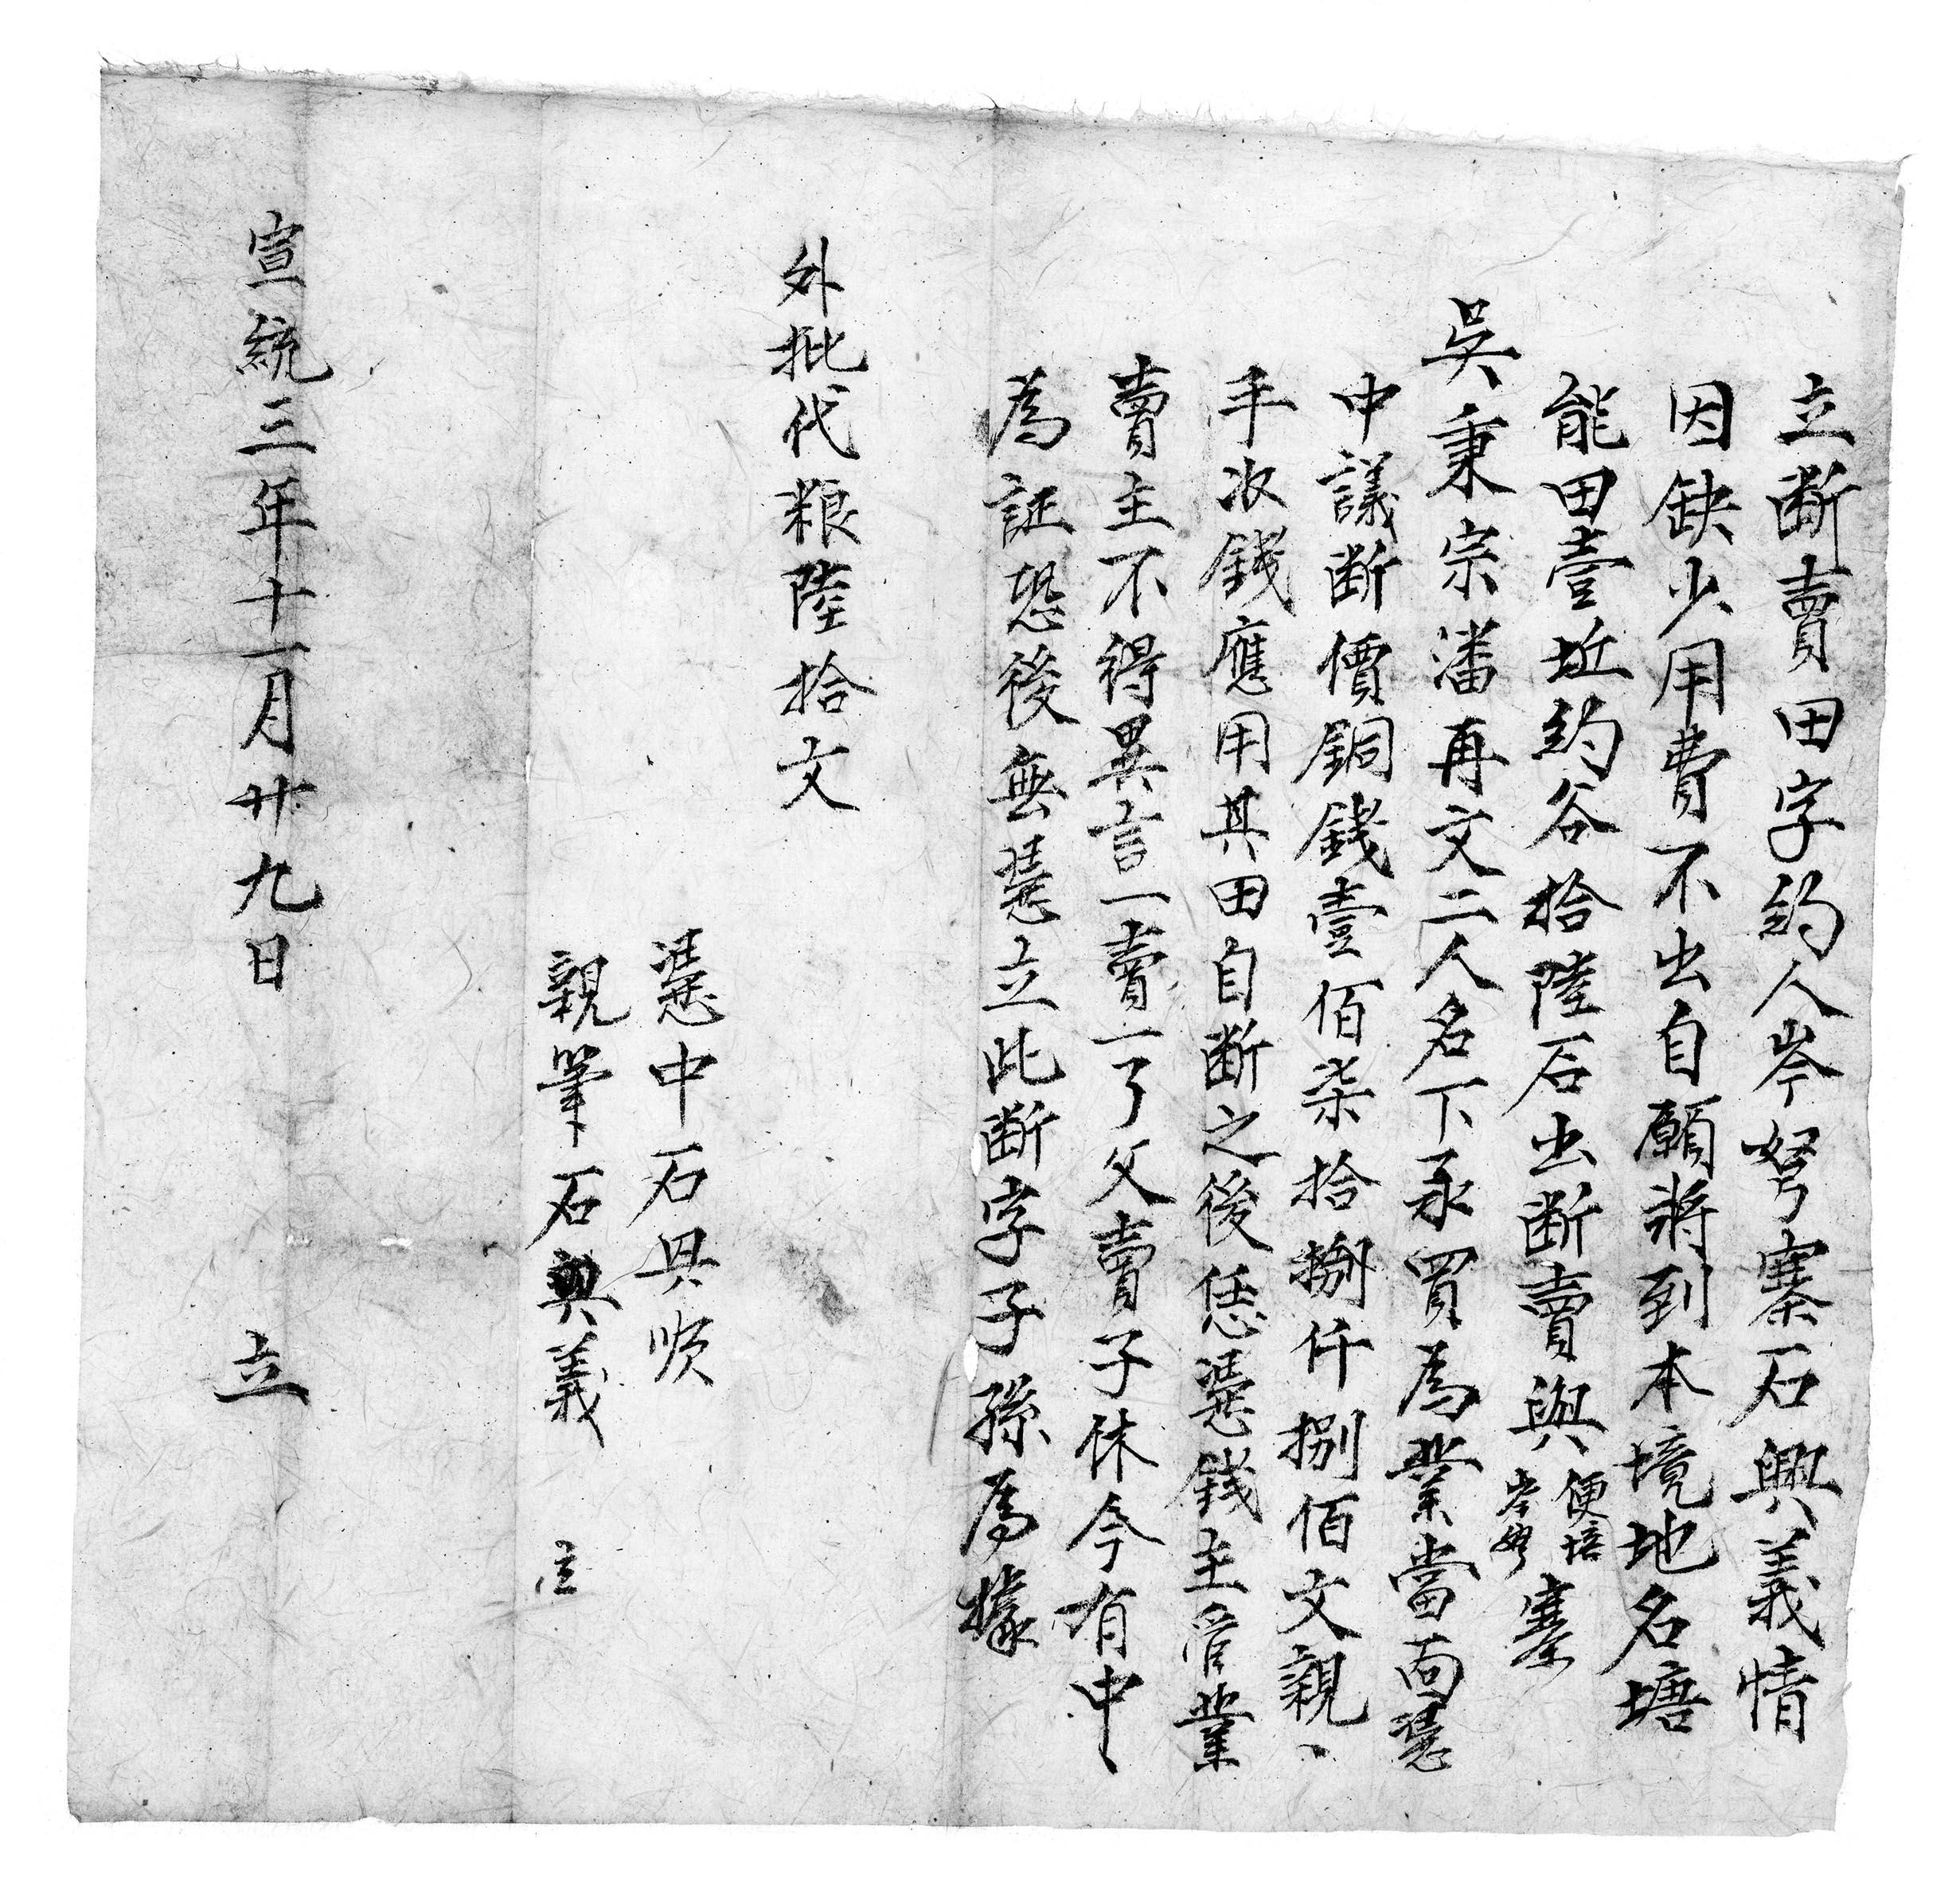 立断賣田字約人岑弩寨石興義情
因缺少用費不出自願將到本境地名塘
能田壹坵約谷拾陸石出断賣與便培岑弩寨
吳秉宗潘再文二人名下承買為業當面憑
中議断價銅錢壹佰柒拾捌仟捌佰文親
手收錢應用其田自断之後恁憑錢主管業
賣主不得異言一賣一了父賣子休今有中
為証恐後無憑立此断字子孫為據
外批代粮陸拾文
憑中石具順
親筆石興義 立
宣統三年十一月廿九日 立